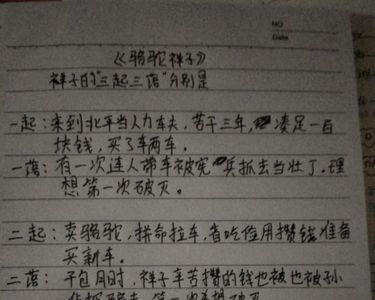 NO
Date
《骆驼祥子》
祥子的"三起三落"分别是
一起：来到北平当人力车夫，苦干三年，凑足一百
块钱，买了车两车。
一落：有一次连人带车被宪兵抓去当壮丁。理
想第一次破灭。
二起：卖骆驼，拼命拉车，省吃俭用攒钱准备
买新车。
二落：干包月时，祥子辛苦攒的钱也被也被孙